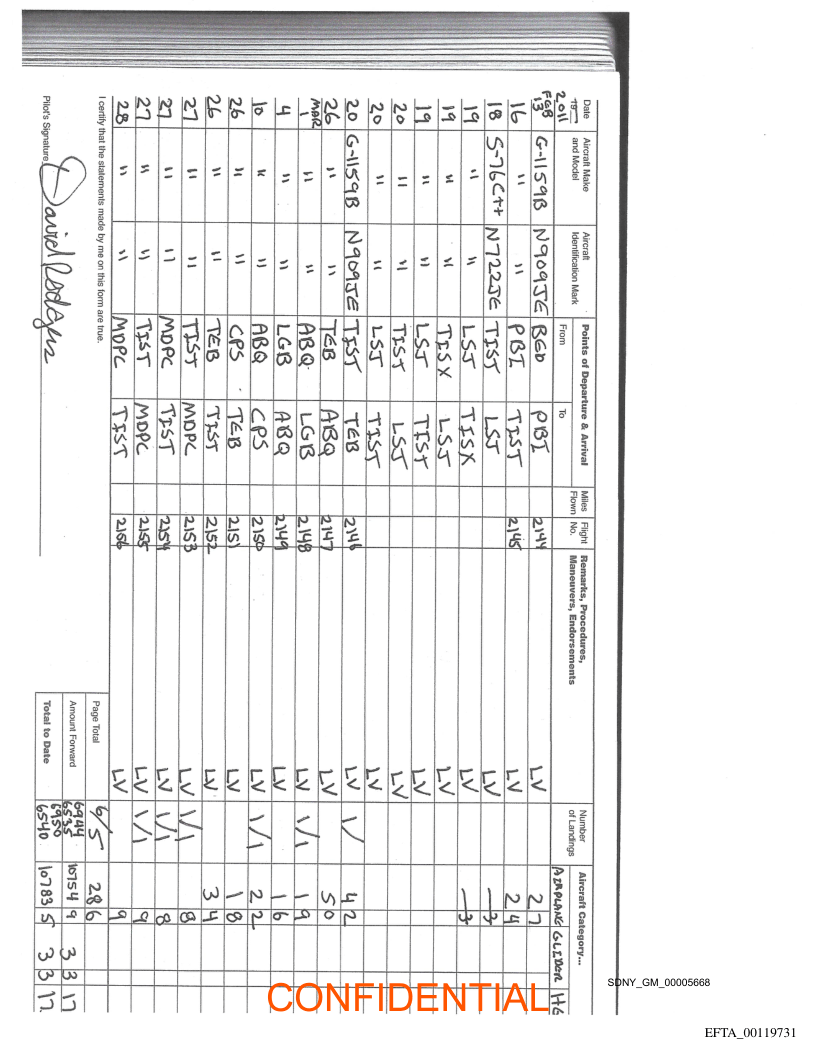 Date 19 2011 Aircraft Make and Model Aircraft Identification Mark Points of Departure & Arrival From To Miles Flown Flight No. Remarks, Procedures, Maneuvers, Endorsements Number of Landings Aircraft Category... AIRPLANE GLIDER
FEB 13 G-1159B N909JE BED PBI 2144 LV 2 7
16 " " PBI TIST 2145 LV 2 4
18 S-76C++ N722JE TIST LSJ LV
19 " " LSJ TISX LV
19 " " TISX LSJ LV
19 " " LSJ TIST LV
20 " " TIST LSJ LV
20 " " LSJ TIST LV
20 G-1159B N909JE TIST TEB 2146 LV 1/ 4 2
26 " " TEB ABQ 2147 LV 5 0
MAR 1 " " ABQ LGB 2148 LV 1/1 1 9
4 " " LGB ABQ 2149 LV 1 6
10 " " ABQ CPS 2150 LV 1/1 2 2
26 " " CPS TEB 2151 LV 1 8
26 " " TEB TIST 2152 LV 3 4
27 " " TIST MDPC 2153 LV 1/1 8
27 " " MDPC TIST 2154 LV 1/1 8
27 " " TIST MDPC 2155 LV 1/1 9
28 " " MDPC TIST 2156 LV 9
I certify that the statements made by me on this form are true.
Page Total 6/5 28 6
Amount Forward 6944 6535 10754 9 3 3 17
Total to Date 6950 6540 10783 5 3 3 17
Pilot's Signature David Rodgers
CONFIDENTIAL
SDNY_GM_00005668
EFTA_00119731